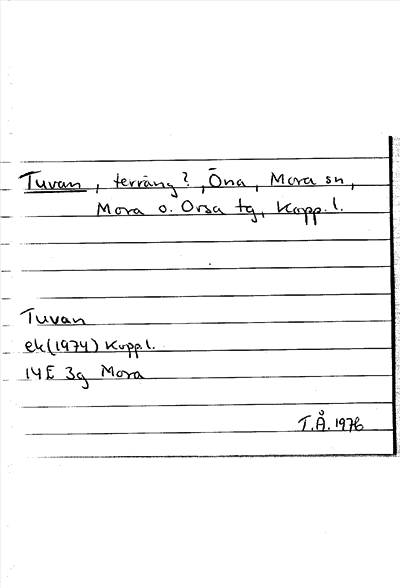 Tuvan, terräng?, Öna, Mora sn,
Mora o. Orsa tg, Kopp.l.
Tuvan
ek(1974) Kopp.l.
14E 3g Mora
T.Å. 1976